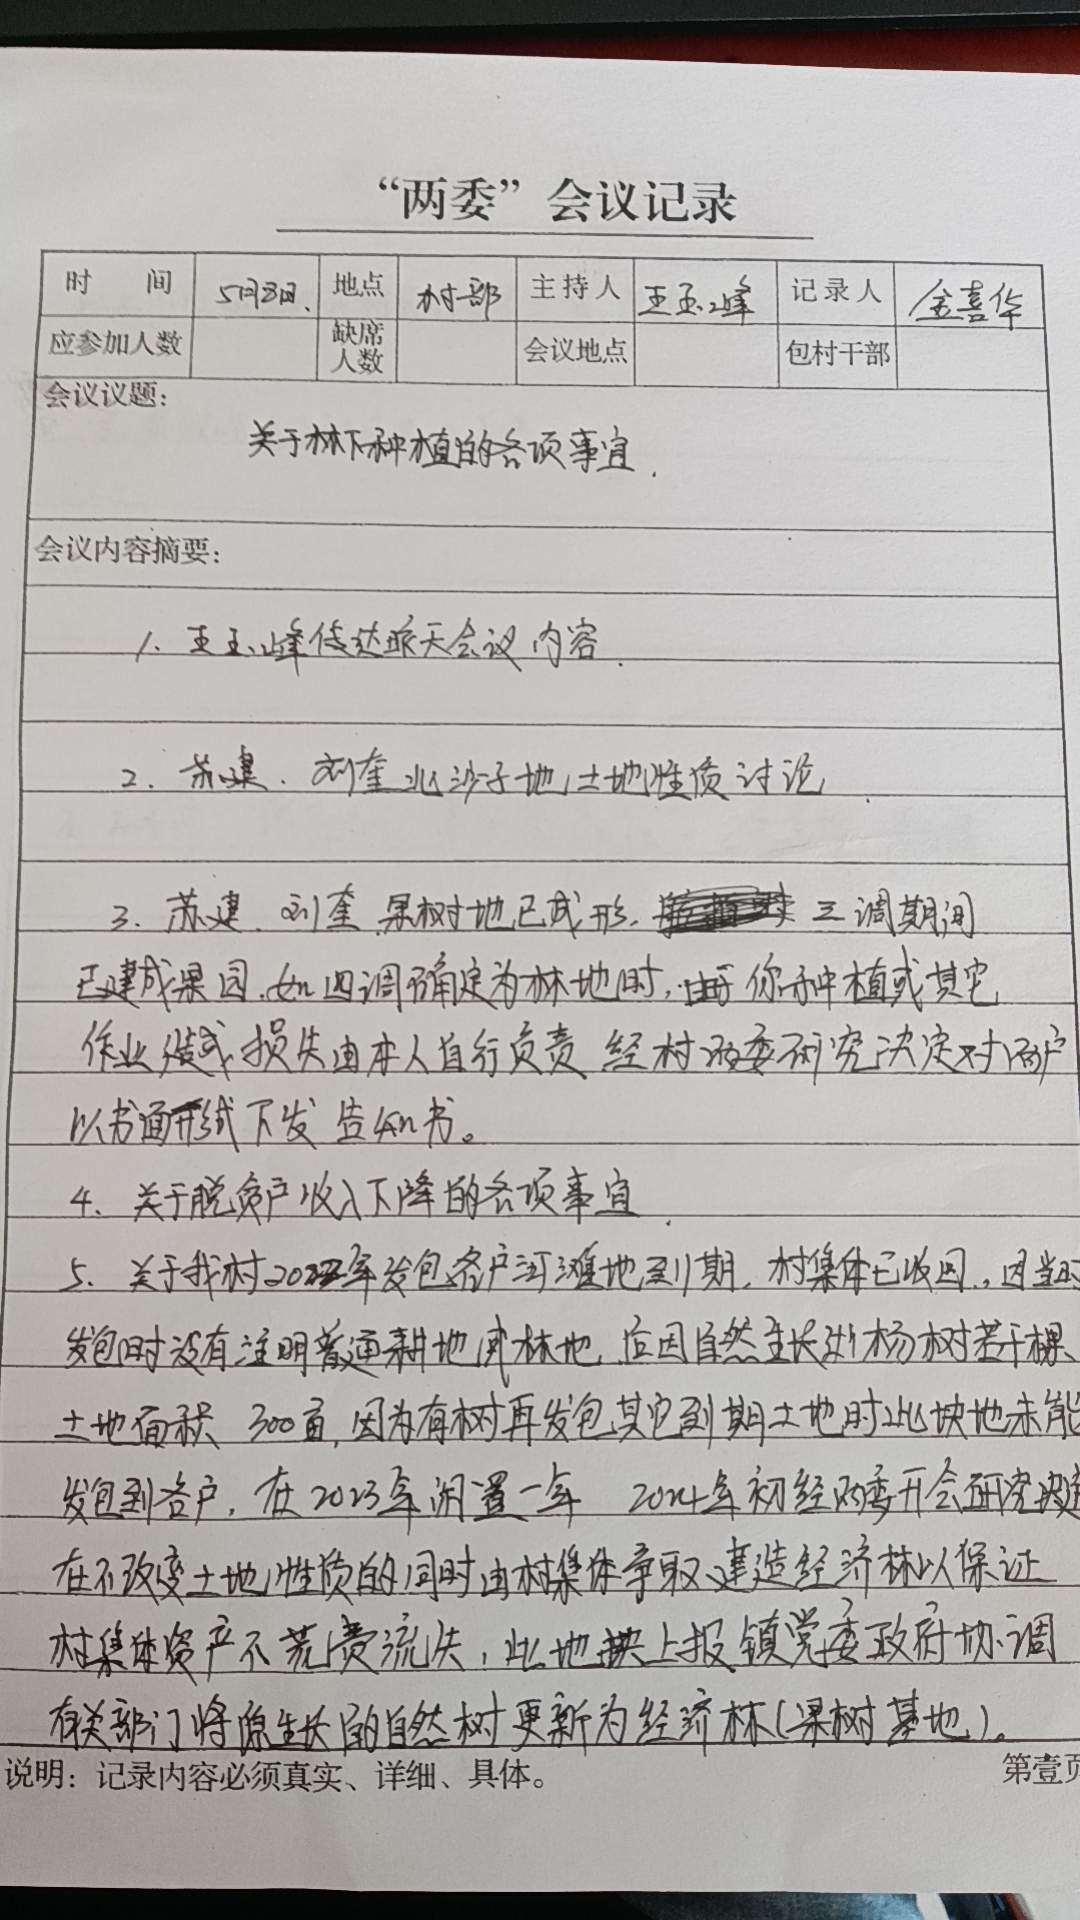 “两委”会议记录
时 间 5月8日. 地点 村部 主持人 王玉峰 记录人 金喜华
应参加人数 缺席人数 会议地点 包村干部
会议议题:
关于林下种植的各项事宜.
会议内容摘要:
1. 王玉峰传达昨天会议内容.
2. 苏建. 刘奎北沙子地土地性质讨论.
3. 苏建 刘奎果树地已成形. 三调期间
已建成果园.如四调确定为林地时, 你种植或其它
作业造成损失由本人自行负责 经村两委研究决定对两户
以书面形式下发告知书。
4. 关于脱贫户收入下降的各项事宜.
5. 关于我村2022年发包各户河滩地到期, 村集体已收回., 因当时
发包时没有注明普通耕地或林地 后因自然生长 杨树若干棵、
土地面积 300亩, 因为有树再发包其它到期土地时此块地未能
发包到各户, 在2023年闲置一年 2024年初经两委开会研究决定
在不改变土地性质的同时由村集体争取建造经济林以保证
村集体资产不荒费流失, 此地块上报镇党委政府协调
有关部门将原生长的自然树更新为经济林(果树基地)。
说明: 记录内容必须真实、详细、具体。 第壹页